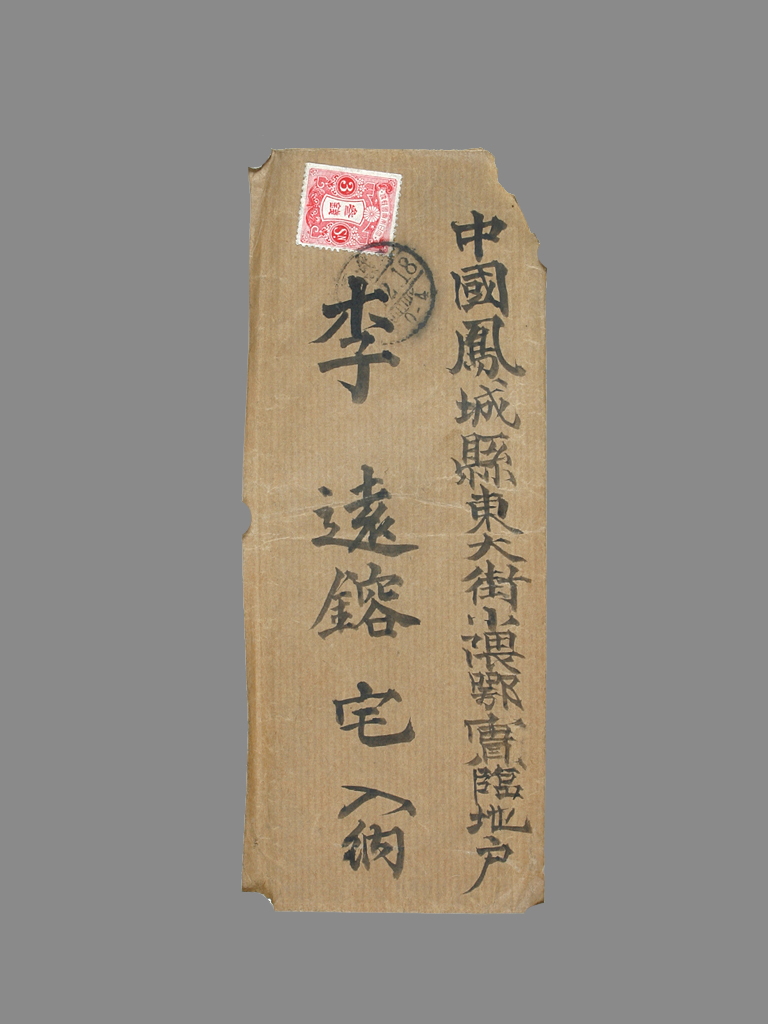 中國鳳城縣東大街臨地户
李遠鎔宅入納
3
18